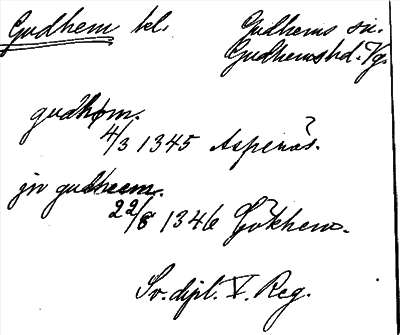 Gudhem kl. Gudhems sn.
Gudhems hd. Vg.
gudhøm.
4/3 1345 Aspenäs.
jn gudheem.
22/8 1346 Gökhem.
Sv. dipl. V. Reg.